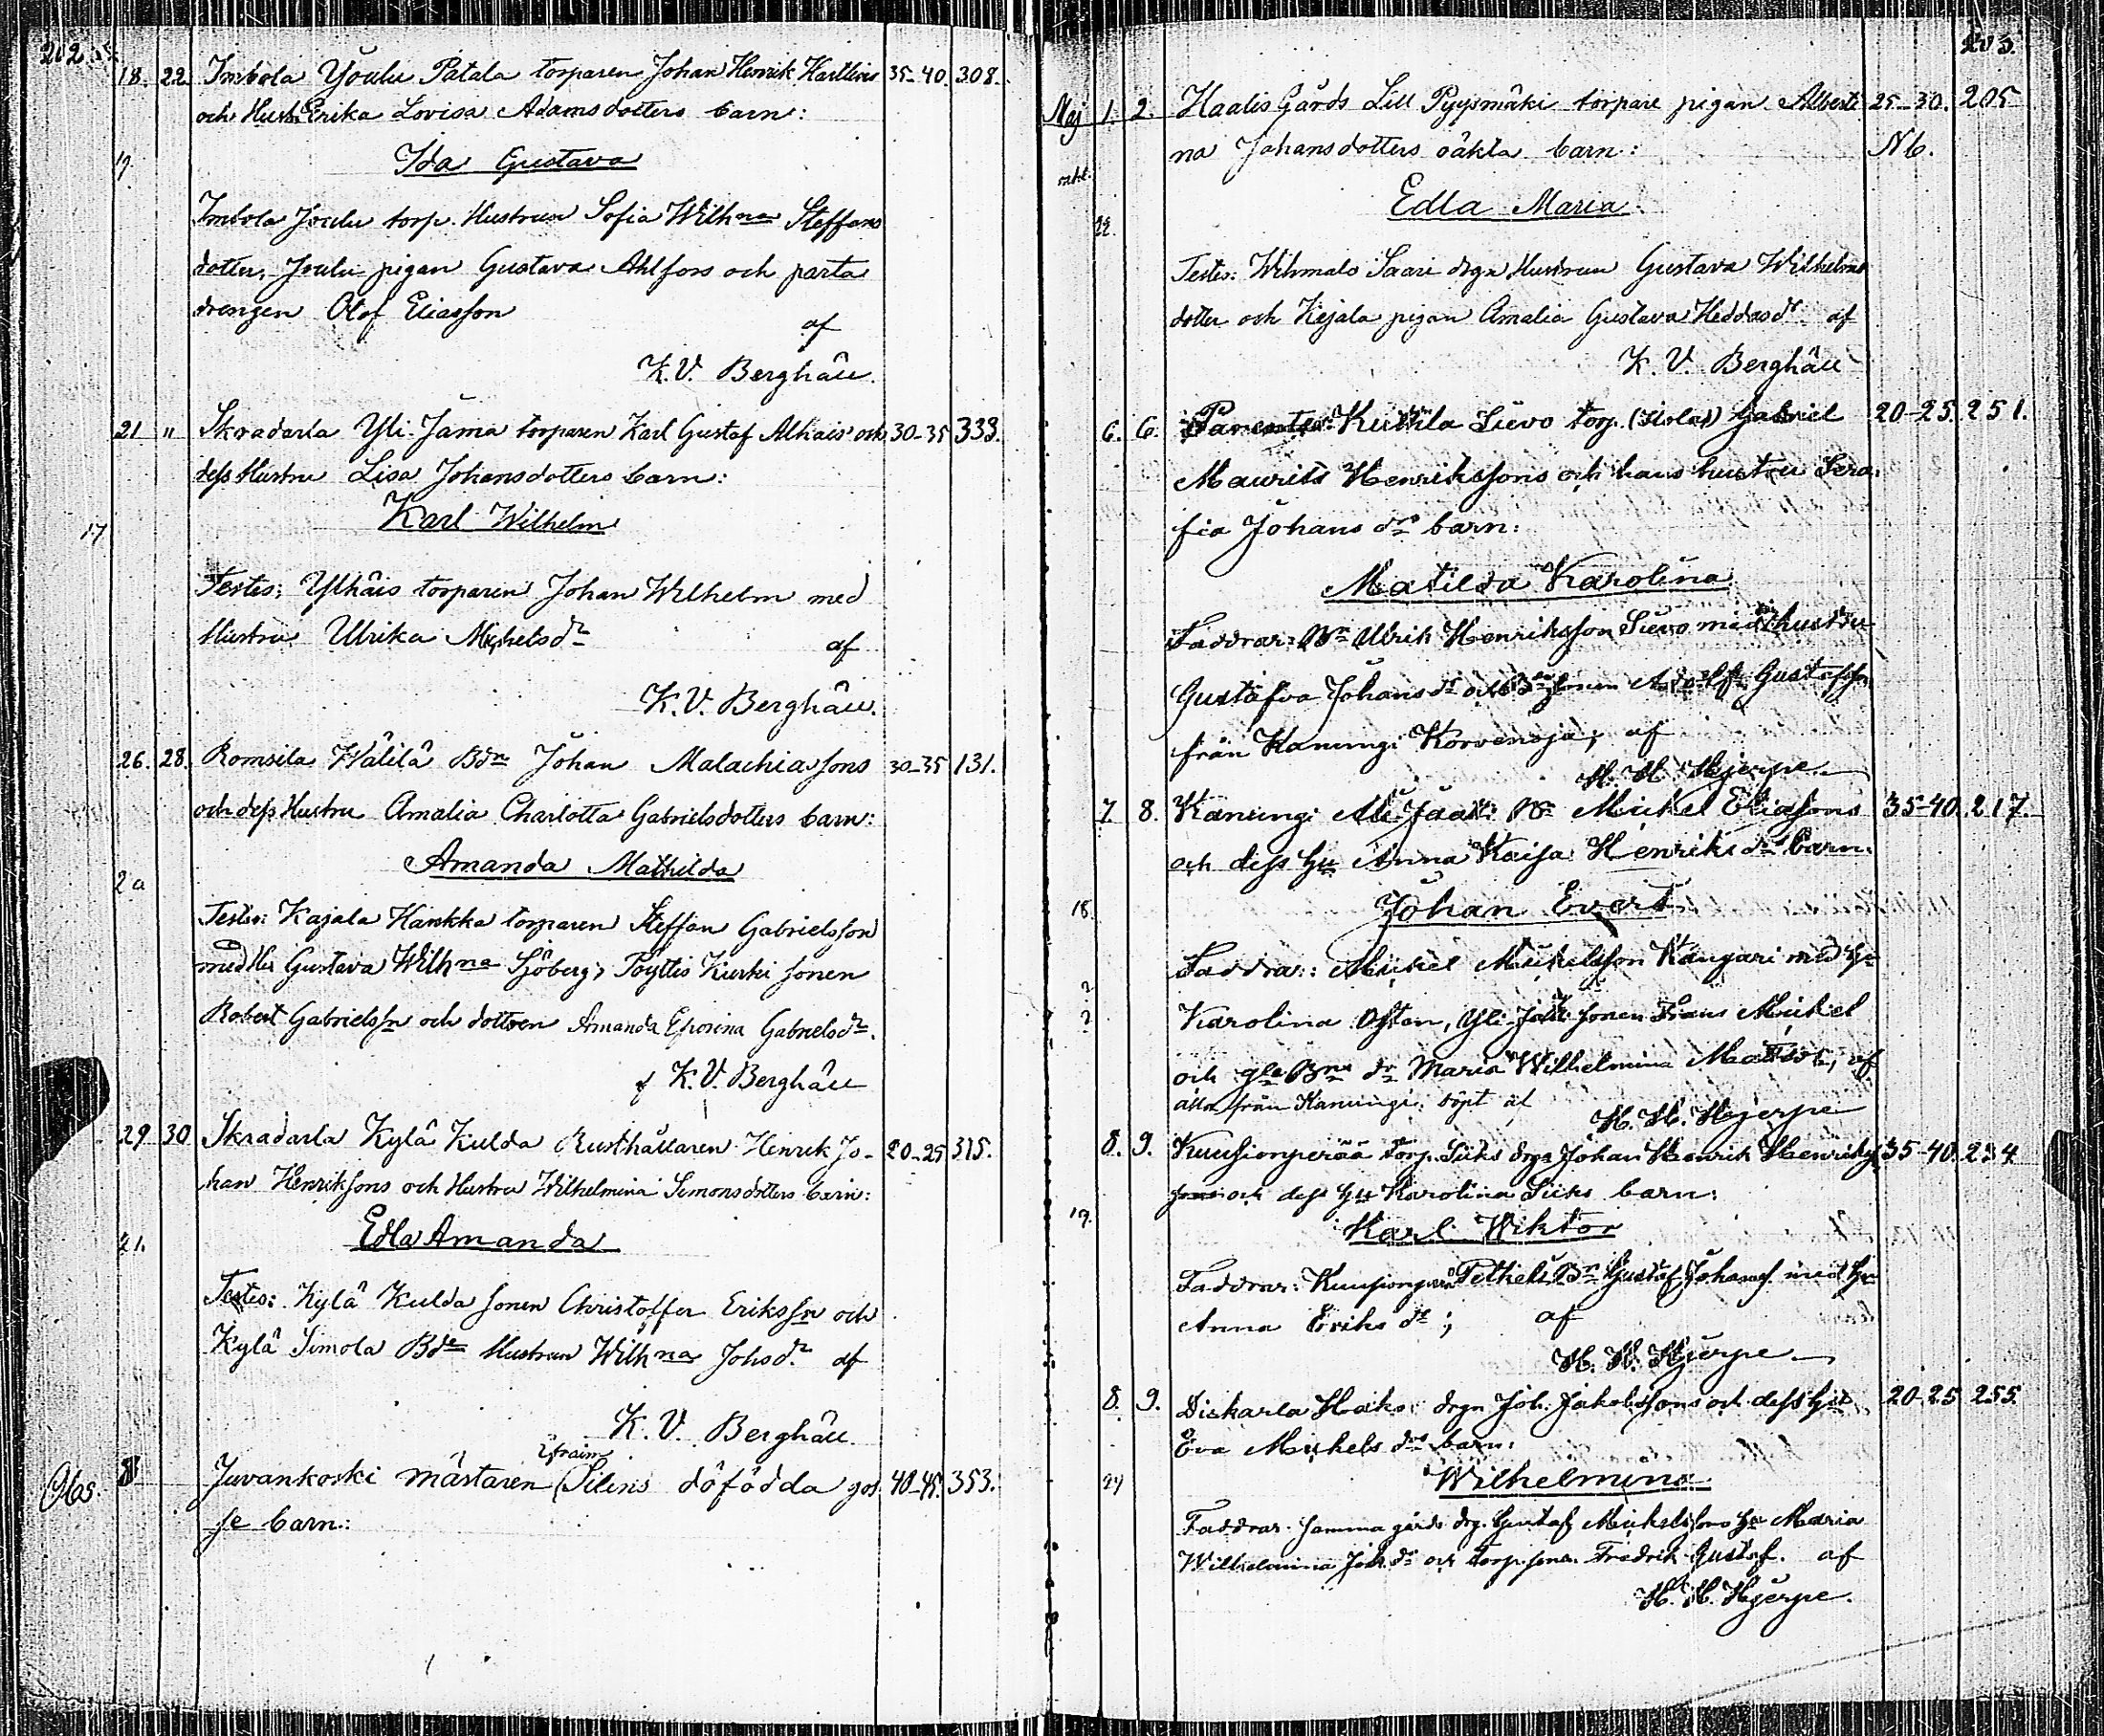 202.
18. 22. Imbola Youlu Patala torparen Johan Henrik Kartlins 35-40. 308.
och Hustr Erika Lovisa Adamsdotters barn:
19. Ida Gustava
Imbola Joulu torp. Hustrun Sofia Wilhna Steffans
dotter, Joulu pigan Gustava Ahlfors och parta
drengen Olof Eliasson
af
K. V. Berghäll.
21 " Skradarla Yli-Jama torparen Karl Gustaf Alhais och 30-35 333.
dess Hustru Lisa Johansdotters barn:
Karl Wilhelm
17
Testes: Ylhäis torparen Johan Wilhelm med
Hustru Ulrika Michelsdr
af
K. V. Berghäll.
26. 28. Romsila Wälilä Bdn Johan Malachiassons 30-35 131.
och dess Hustru Amalia Charlotta Gabrielsdotters barn:
Amanda Mathilda
20
Testes: Kajala Hankka torparen Steffan Gabrielsson
med Hu Gustava Wilhna Sjöberg, Poyttis Kurki sonen
Robert Gabrielssn och dottren Amanda Efrosina Gabrielsdr.
af K. V. Berghäll
29 30 Skradarla Kylä Kulda Rusthållaren Henrik Jo- 20-25 315.
han Henriksons och Hustru Wilhelmina Simonsdotters barn:
21. Edla Amanda
Testes: Kylä Kulda sonen Christoffer Erikssn och
Kylä Simola Bde Hustrun Wilhna Johsdr. af
K. V. Berghäll.
Efraim
Obs. Juvankoski mästaren Silens döfödda gos 40-45. 353.
se barn:
203.
Maj 1. 2. Haalis Gårds Lill Pyysmäki torpare pigan Alberti 25-30. 205
na Johansdotters oäkta barn: Nb.
Edla Maria
22.
Testes: Wihmalo Saari drgn Hustrun Gustava Wilhelms
dotter och Kejala pigan Amalia Gustava Heddasdr af
K. V. Berghäll
6. 6. Kuhila Sievo torp. Gabriel 20-25. 251.
Maurits Henrikssons och hans hustru Sera
fia Johans drs barn:
Matilda Karolina
Faddrar: Bn Ulrik Henriksson Sievo med hustru
Gustafva Johansdr och sonen Adolf Gustafsson
från Kanungi Korvenoja, af
H. H. Hjerpe
7. 8. Kanungi Ali-Jaak: Bn Mickel Eliassons 35-40. 217.
och dess hu Anna Kaisa Henriksdrs barn:
18. Johan Evert
Faddrar: Mickel Mickelsson Kangari med hu
? Karolina Osten, Yli-Jaak sonen Frans Mickel
? och gle Bns dr Maria Wilhelmina Matsdr, af
alla från Kanungi. döpt af H. H. Hjerpe
8. 9. Kuusionperää torp. Siiks drgn Johan Henrik Henriks 35-40. 234
sons och dess hu Karolina Siiks barn:
19. Karl Wiktor
Faddrar: Kuusionperä Pethels Bn Gustaf Johanss. med hu
Anna Eriksdr; af
H. H. Hjerpe
8. 9. Diskarla Hoiko drgn Joh. Jakobssons och dess Hu 20-25 255.
Eva Mickelsdrs barn:
24 Wilhelmina
Faddrar: samma gårds drg. Gustaf Mickelssons hu Maria
Wilhelmina Johdr och torp. sonen Fredrik Gustaf. af
H. H. Hjerpe.